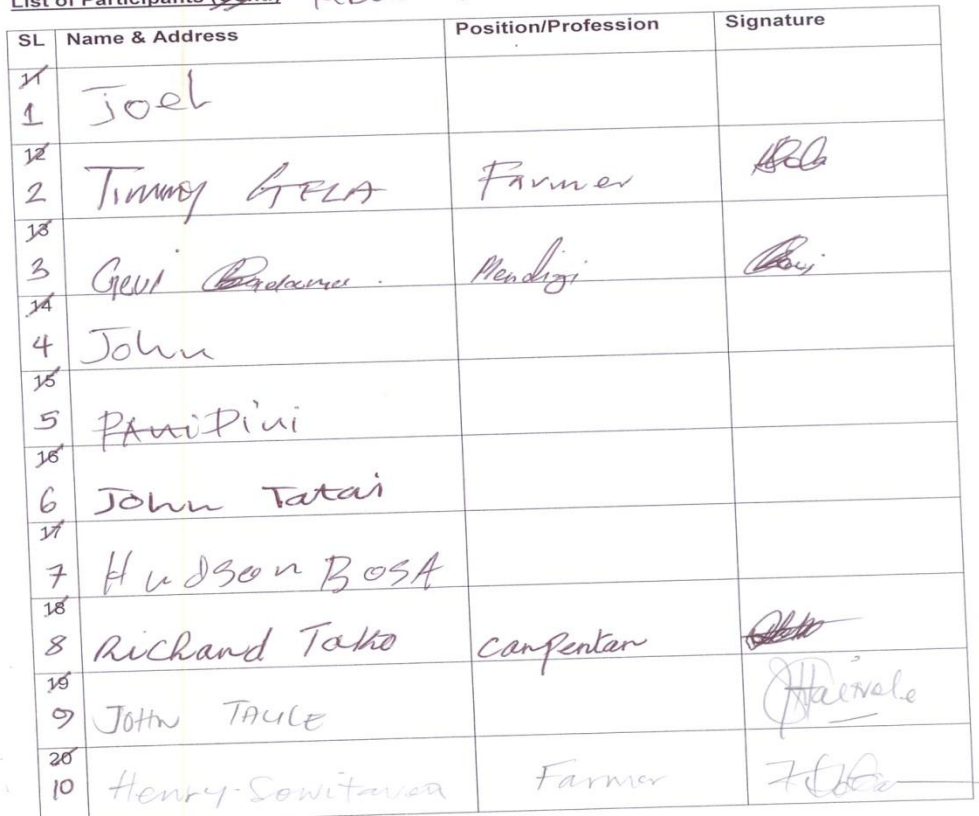 List of Participants
SL Name & Address Position/Profession Signature
11
1 Joel
12
2 Timmy GELA Farmer
13
3 Geui
14
4 John
15
5 PAniPini
16
6 John Tatai
17
7 Hudson BOSA
18
8 Richand Tatho canpentan
19
9 JOHN TAULE
20
10 Henry Farmer